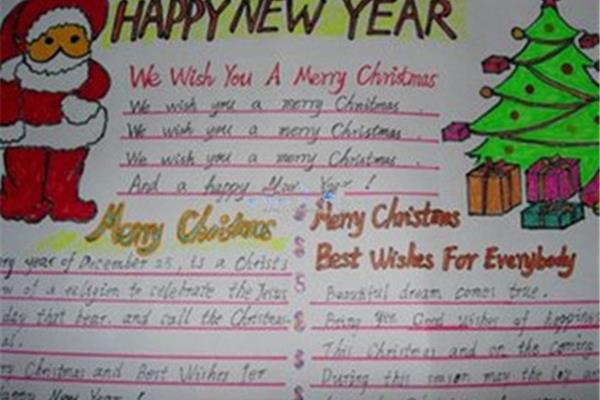 HAPPY NEW YEAR
We Wish You A Merry Christmas
We wish you a merry Christmas .
We wish you a merry Christmas .
We wish you a merry Christmas .
And a happy New Year !
Merry Christmas
ry year of December 25, is a Christ
of a religion to celebrate the Jesus
day that and call the Christmas
al.
ry Christmas and Best Wishes for
Happy New Year !
Merry Christmas
Best Wishes For Everybody
Beautiful dream comes true .
Bring you Good wishes of happines
This Christmas and on the coming
During this season may the joy and